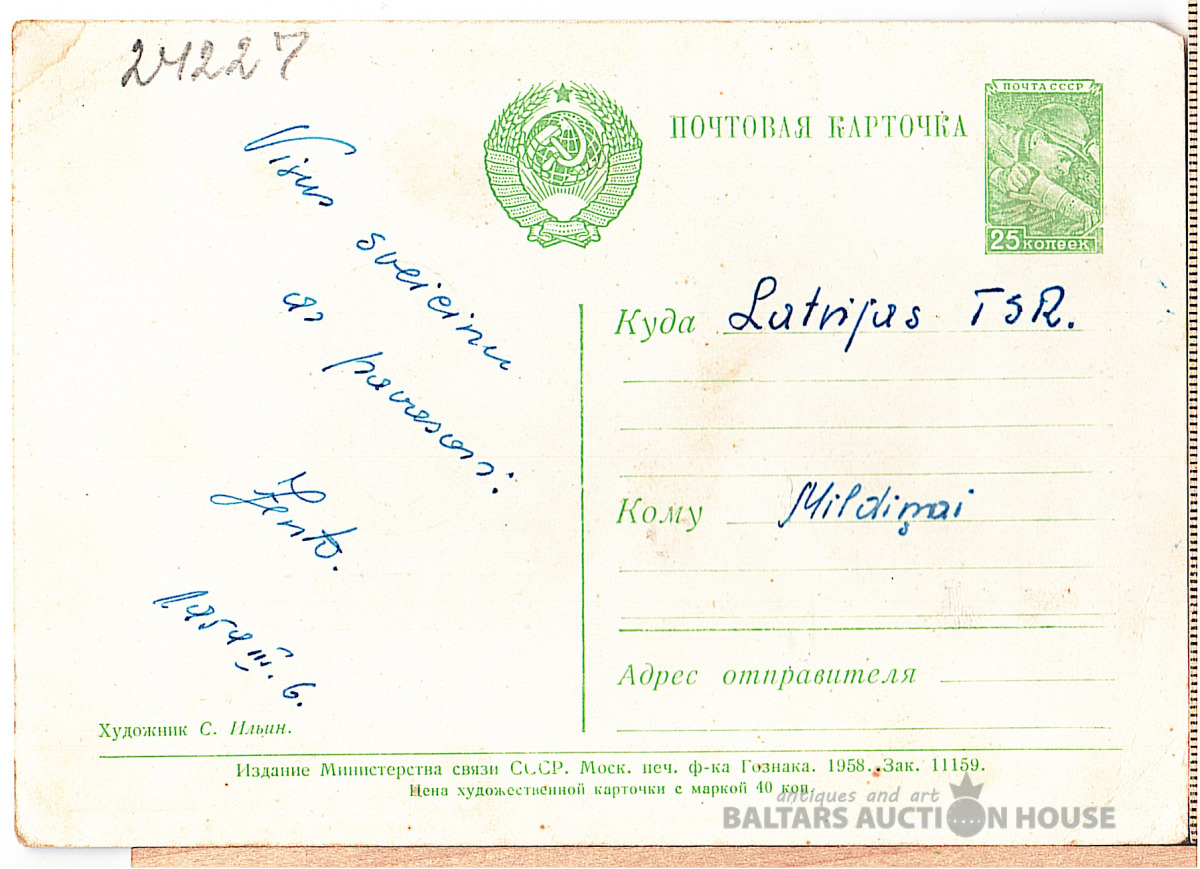 24227
Visus
sveicinu
ar
pavasari.
Zento.
1959 III. 6.
Художник С. Ильин.
ПОЧТОВАЯ КАРТОЧКА
ПОЧТА СССР
25 копеек
Куда Latvijas TSR.
Кому Mildiņai
Адрес отправителя
Издание Министерства связи СССР. Моск. печ. ф-ка Гознака. 1958. Зак. 11159.
Цена художественной карточки с маркой 40 коп.
antiques and art
BALTARS AUCTION HOUSE